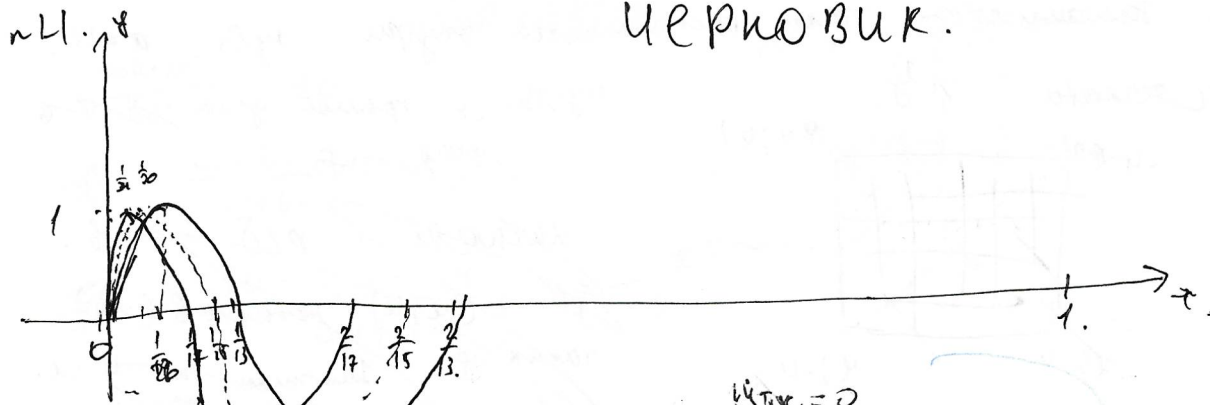 n4. y
черновик.
1/21 1/20
1
0 1/26 1/17 1/15 1/13 2/17 2/15 2/13. 1. x.